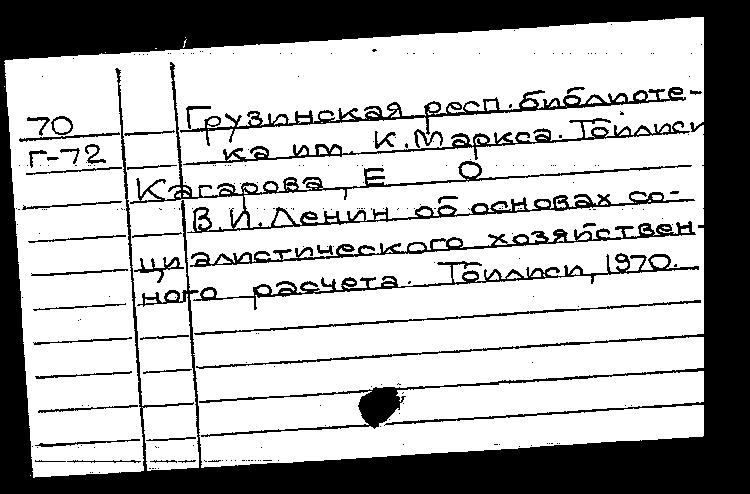 70 Грузинская респ. библиоте-
Г-72 ка им. К. Маркса. Тбилиси
Кагарова, Е О
В.И. Ленин об основах со-
циалистического хозяйствен-
ного расчета. Тбилиси, 1970.